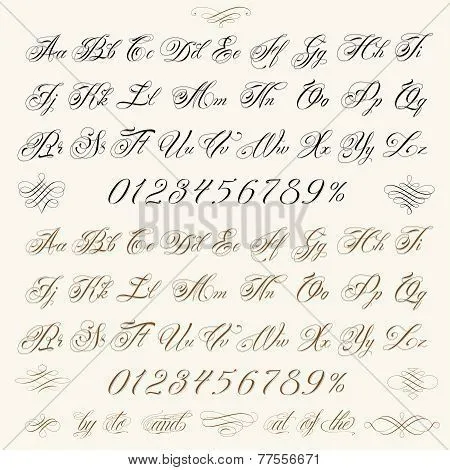 Aa Bb Cc Dd Ee Ff Gg Hh Ii
Jj Kk Ll Mm Nn Oo Pp Qq
Rr Ss Tt Uu Vv Ww Xx Yy Zz
0123456789%
Aa Bb Cc Dd Ee Ff Gg Hh Ii
Jj Kk Ll Mm Nn Oo Pp Qq
Rr Ss Tt Uu Vv Ww Xx Yy Zz
0123456789%
by to and at of the
depositphotos 77556671